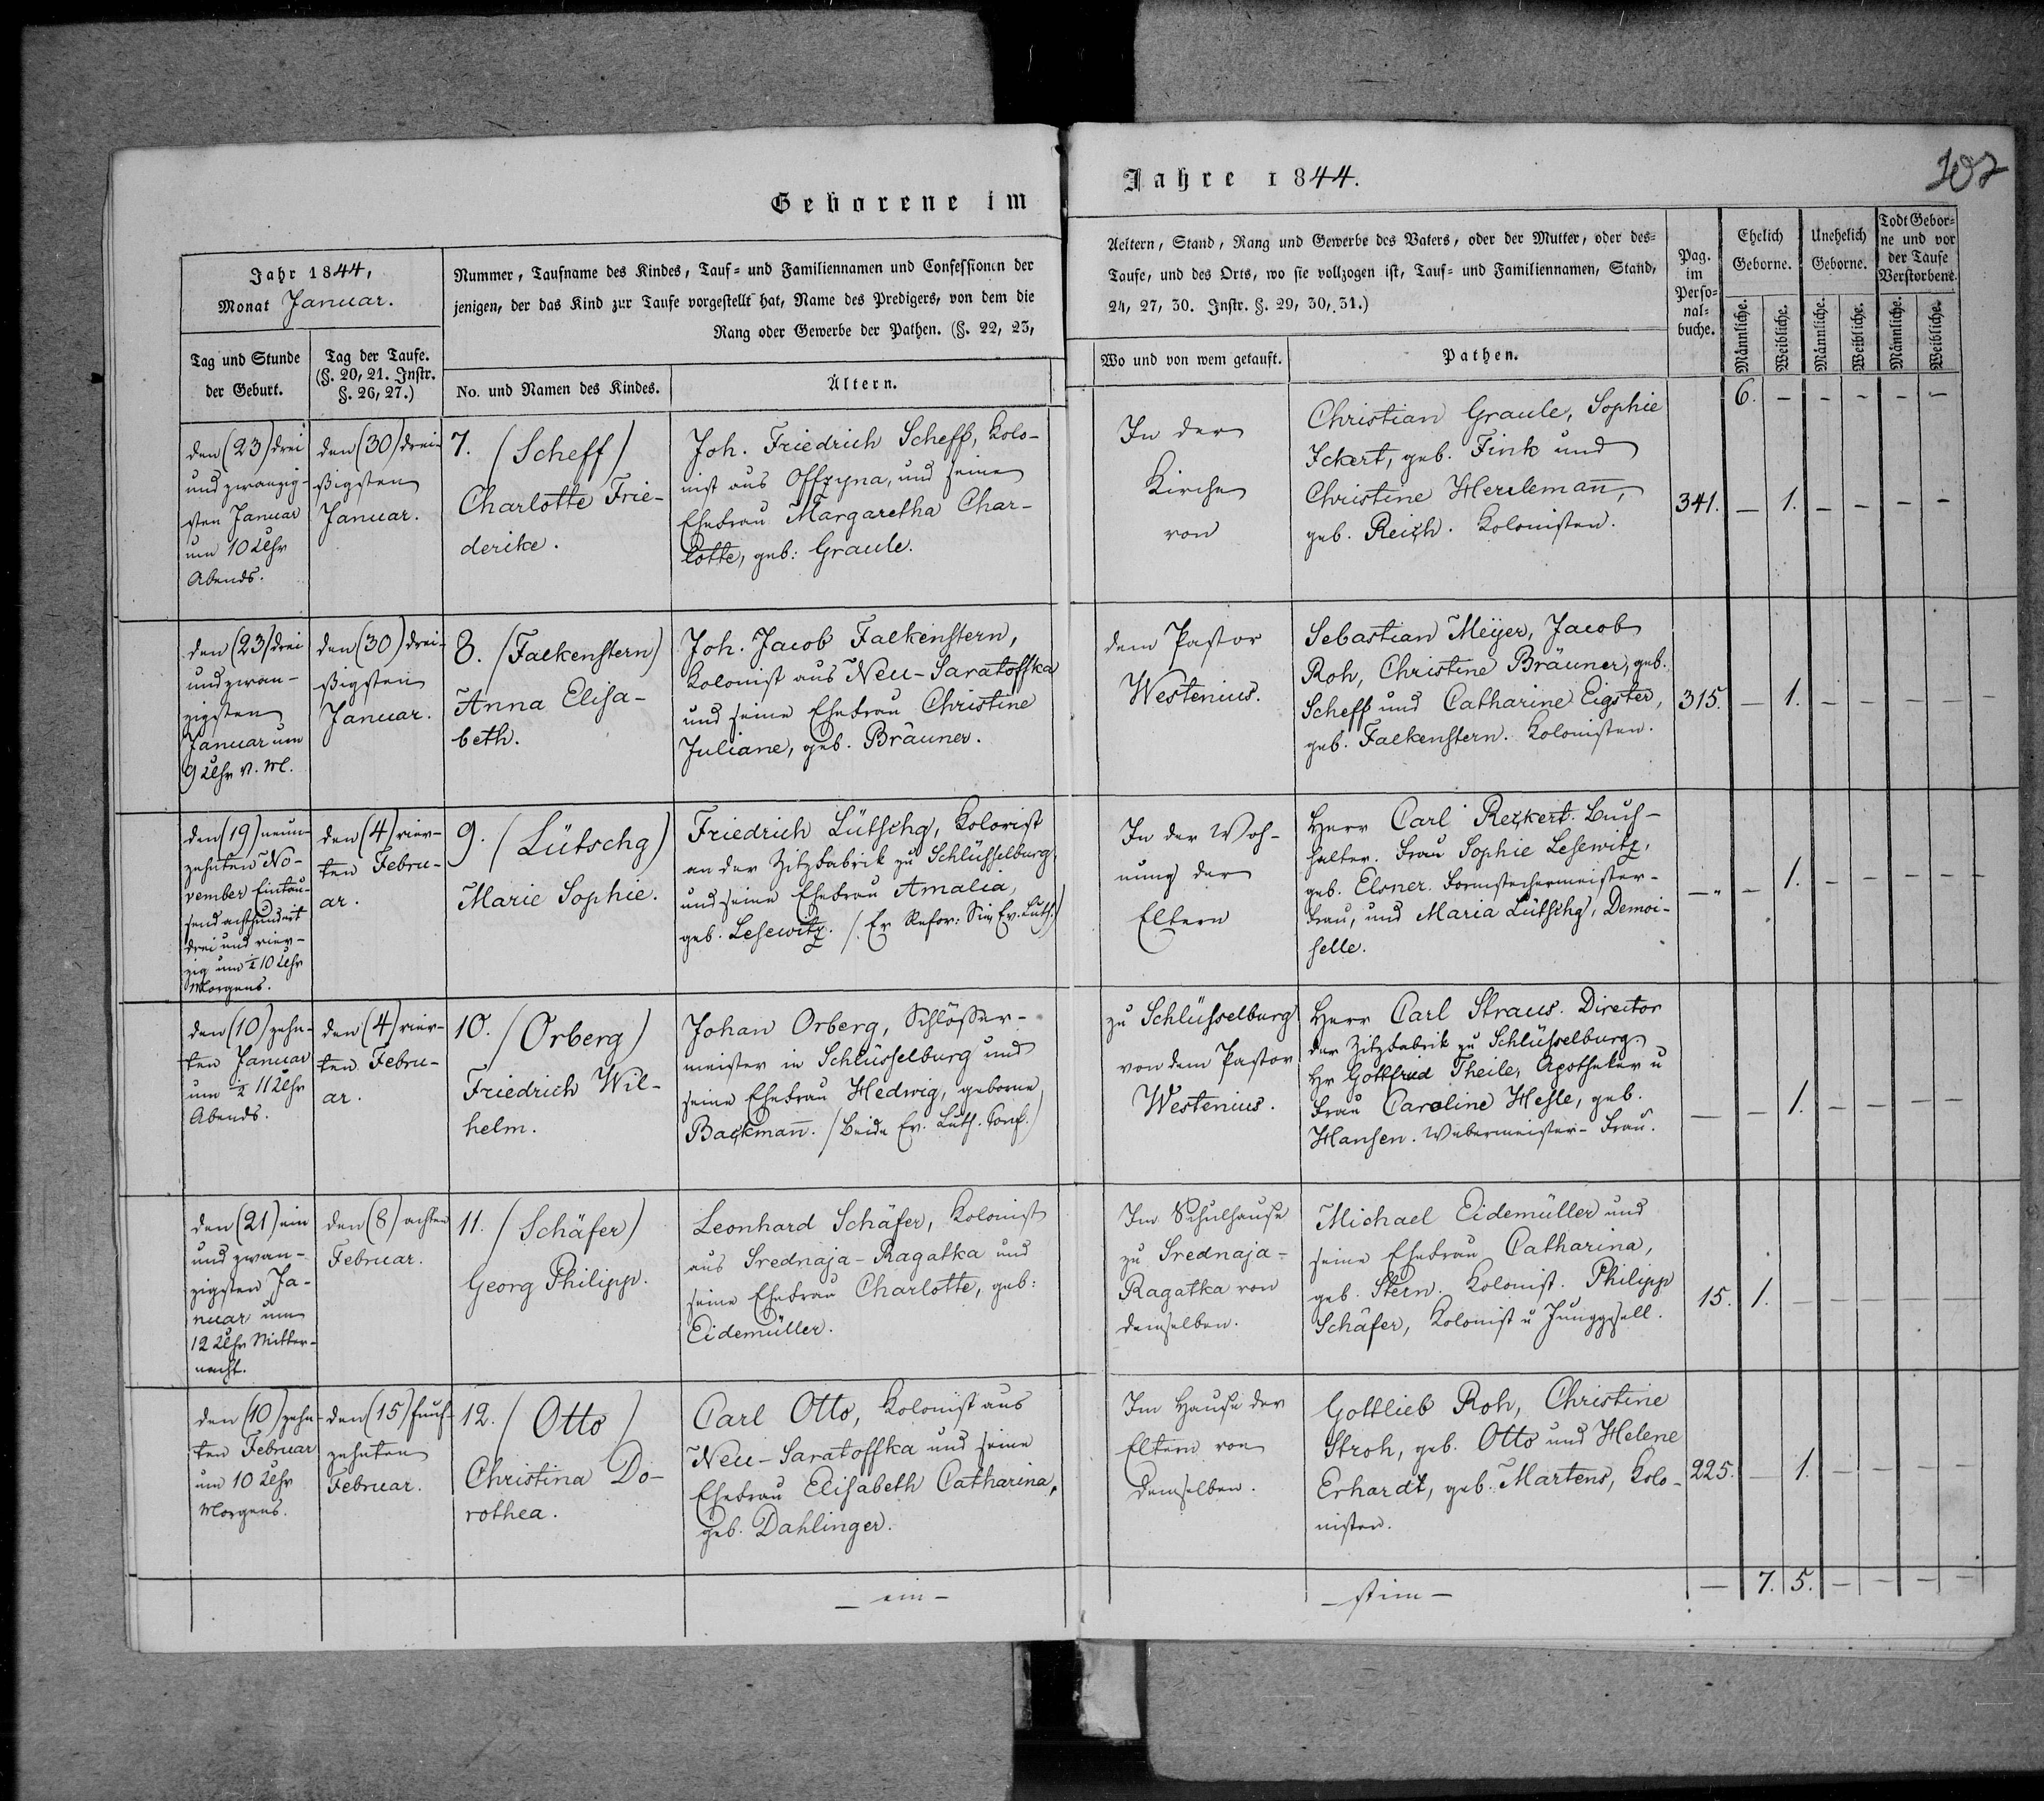 Geborene im
Jahre 1844.
107
Jahr 1844,
Monat Januar.
Tag und Stunde
der Geburt.
Tag der Taufe.
(§. 20, 21. Instr.
§. 26, 27.)
Nummer, Taufname des Kindes, Tauf- und Familiennamen und Confessionen der
jenigen, der das Kind zur Taufe vorgestellt hat, Name des Predigers, von dem die
Rang oder Gewerbe der Pathen. (§. 22, 23,
No. und Namen des Kindes.
Ältern.
Aeltern, Stand, Rang und Gewerbe des Vaters, oder der Mutter, oder des-
Taufe, und des Orts, wo sie vollzogen ist, Tauf- und Familiennamen, Stand,
24, 27, 30. Instr. §. 29, 30, 31.)
Wo und von wem getauft.
Pathen.
Pag.
im
Perso-
nal-
buche.
Ehelich
Geborne.
Unehelich
Geborne.
Todt Gebor-
ne und vor
der Taufe
Verstorbene.
Männliche.
Weibliche.
Männliche.
Weibliche.
Männliche.
Weibliche.
6. - - - - -
den (23) drei
und zwanzig-
sten Januar
um 10 Uhr
Abends.
den (30) drei-
ßigsten
Januar.
7. (Scheff)
Charlotte Frie-
derike.
Joh. Friedrich Scheff, Kolo-
nist aus Offzyna, und seine
Ehefrau Margaretha Char-
lotte, geb: Graule.
In der
Kirche
von
Christian Graule, Sophie
Ickert, geb. Fink und
Christine Herrlemañ,
geb. Reich. Kolonisten.
341. - 1. - - - -
den (23) drei
und zwan-
zigsten
Januar um
9 Uhr N. M.
den (30) drei-
ßigsten
Januar.
8. (Falkenstern)
Anna Elisa-
beth.
Joh. Jacob Falkenstern,
Kolonist aus Neu-Saratoffka
und seine Ehefrau Christine
Juliane, geb. Bräuner.
dem Pastor
Westenius.
Sebastian Meyer, Jacob
Roh, Christine Bräuner, geb.
Scheff und Catharine Eigster,
geb. Falkenstern. Kolonisten.
315. - 1. - - - -
den (19) neun-
zehnten No-
vember Eintau-
send achthundert
drei und vier-
zig um ½ 10 Uhr
Morgens.
den (4) vier-
ten Febru-
ar.
9. (Lütschg)
Marie Sophie.
Friedrich Lütschg, Kolorist
an der Zitzfabrik zu Schlüsselburg,
und seine Ehefrau Amalia,
geb. Lesewitz. (Er Refor: Sie Ev. Luth.)
In der Woh-
nung der
Eltern
Herr Carl Reckert. Buch-
halter. Frau Sophie Lesewitz,
geb. Elsner. Formstechermeister-
Frau, und Maria Lütschg, Demoi-
selle.
- - 1. - - - -
den (10) zehn-
ten Januar
um ½ 11 Uhr
Abends.
den (4) vier-
ten Febru-
ar.
10. (Orberg)
Friedrich Wil-
helm.
Johan Orberg, Schlösser-
meister in Schlüsselburg und
seine Ehefrau Hedwig, geborne
Backmañ. (Beide Ev. Luth. Conf.)
zu Schlüsselburg
von dem Pastor
Westenius.
Herr Carl Straus. Director
der Zitzfabrik zu Schlüsselburg.
Hr Gottfried Theile, Apotheker u
Frau Caroline Hesle, geb.
Hansen. Webermeister-Frau.
- - 1. - - - -
den (21) ein
und zwan-
zigsten Ja-
nuar um
12 Uhr Mitter-
nacht.
den (8) achten
Februar.
11. (Schäfer)
Georg Philipp.
Leonhard Schäfer, Kolonist
aus Srednaja-Ragatka und
seine Ehefrau Charlotte, geb:
Eidemüller.
Im Schulhause
zu Srednaja-
Ragatka von
demselben.
Michael Eidemüller und
seine Ehefrau Catharina,
geb. Stern. Kolonist. Philipp
Schäfer, Kolonist u Junggesell.
15. 1. - - - - -
den (10) zehn-
ten Februar
um 10 Uhr
Morgens.
den (15) funf-
zehnten
Februar.
12. (Otto)
Christina Do-
rothea.
Carl Otto, Kolonist aus
Neu-Saratoffka und seine
Ehefrau Elisabeth Catharina,
geb. Dahlinger.
Im Hause der
Eltern von
demselben.
Gottlieb Roh, Christine
Stroh, geb. Otto und Helene
Erhardt, geb. Martens, Kolo-
nisten.
225. - 1. - - - -
- ein -
- stim -
- 7. 5. - - - -